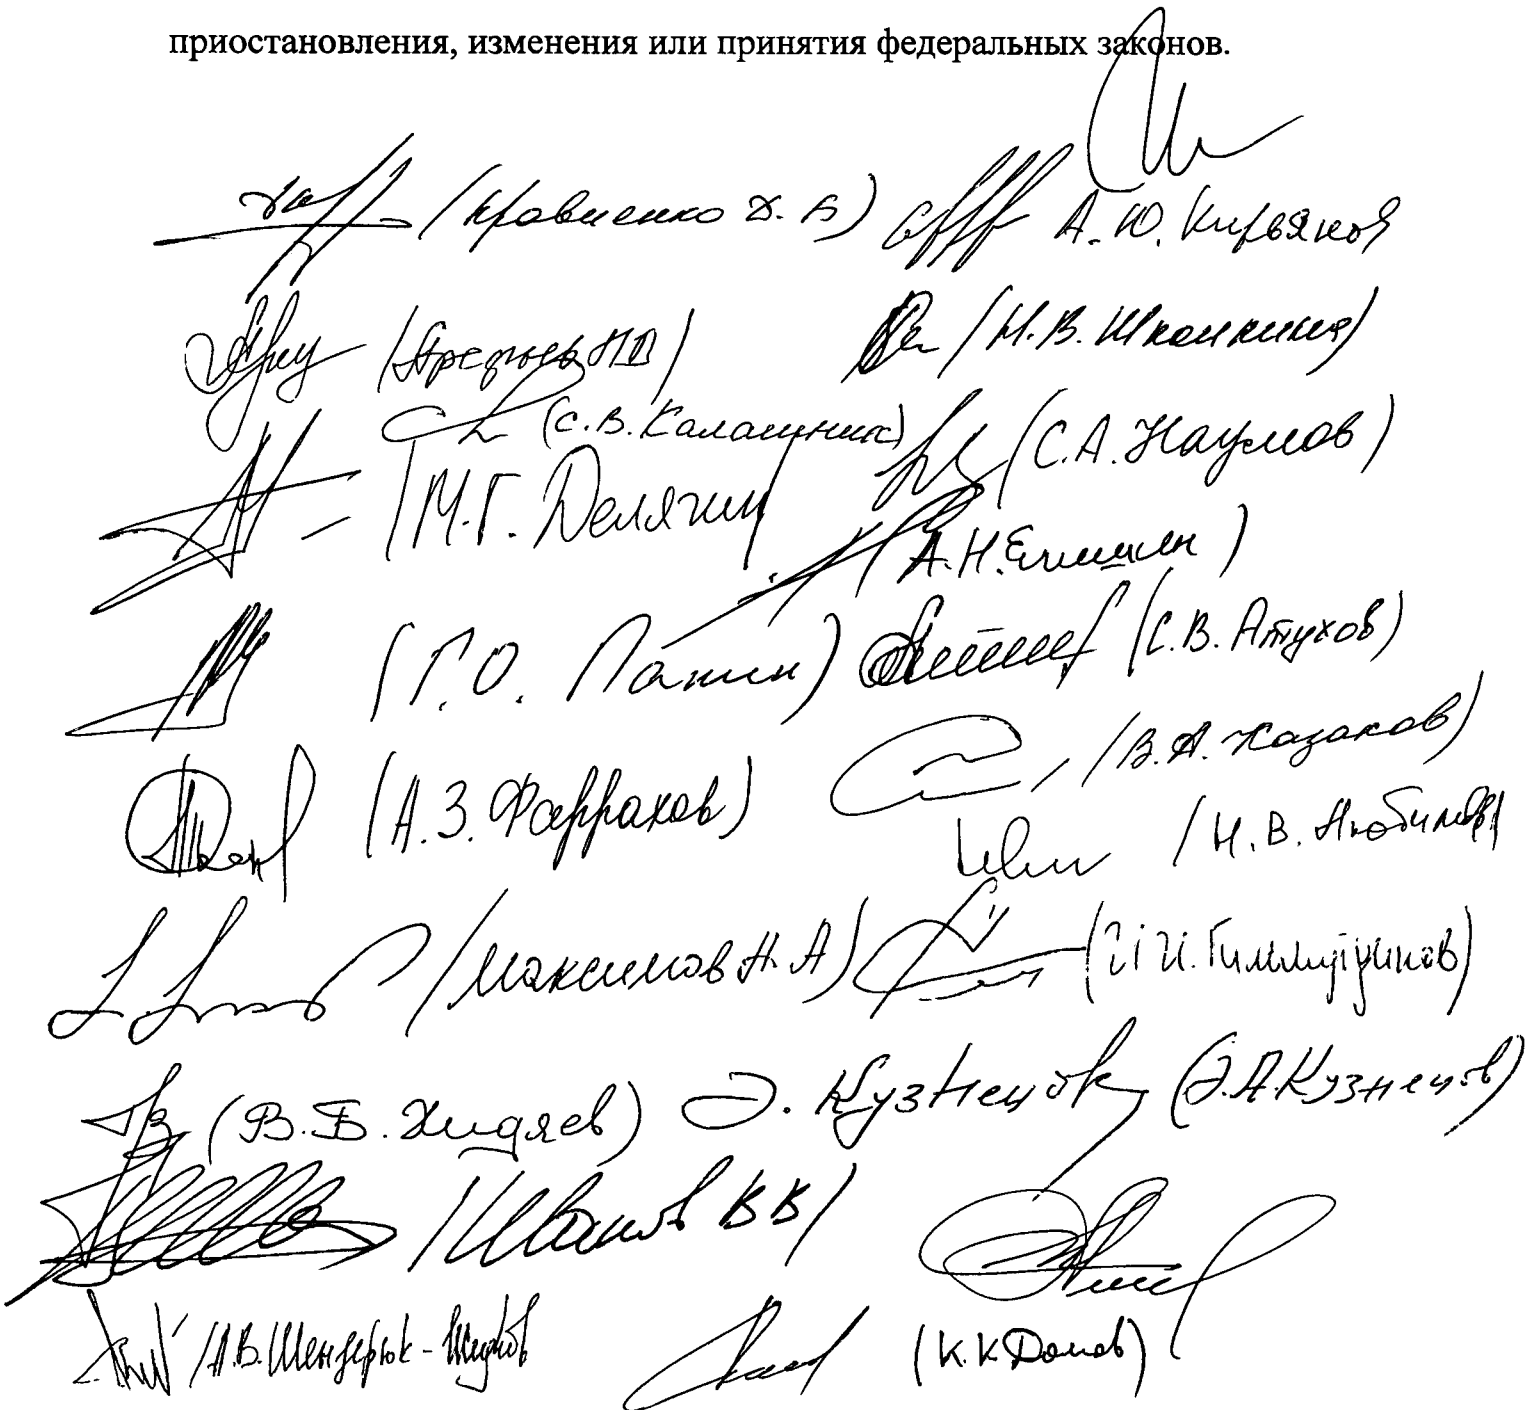 приостановления, изменения или принятия федеральных законов.
(Кравченко Д.Б) А.Ю. Кирьянов
(Арефьев Н.В) (Н.В. Школкина)
(С.В. Калашник) (С.А. Наумов)
(М.Г. Делягин
(А.Н. Енишин)
(Г.О. Панин) (С.В. Алтухов)
(В.А. Казаков)
(А.З. Фаррахов)
(Н.В. Любимов)
(Максимов Н.А) (И.И. Гильмутдинов)
(В.Б. Хидяев) Э. Кузнецов (Э.А. Кузнецов)
(Иванов ВВ)
(А.В. Шендерюк-Жидков
(К.К. Долгов)